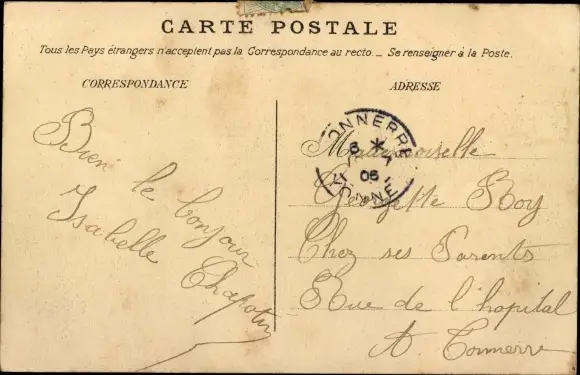 CARTE POSTALE
Tous les Pays étrangers n'acceptent pas la Correspondance au recto. _ Se renseigner à la Poste.
CORRESPONDANCE
Bien le bonjour
Isabelle Chapotin
ADRESSE
TONNERRE
8 * 7
06
YONNE
Mademoiselle
Georgette Roy
Chez ses Parents
Rue de l'hopital
A. Tonnerre